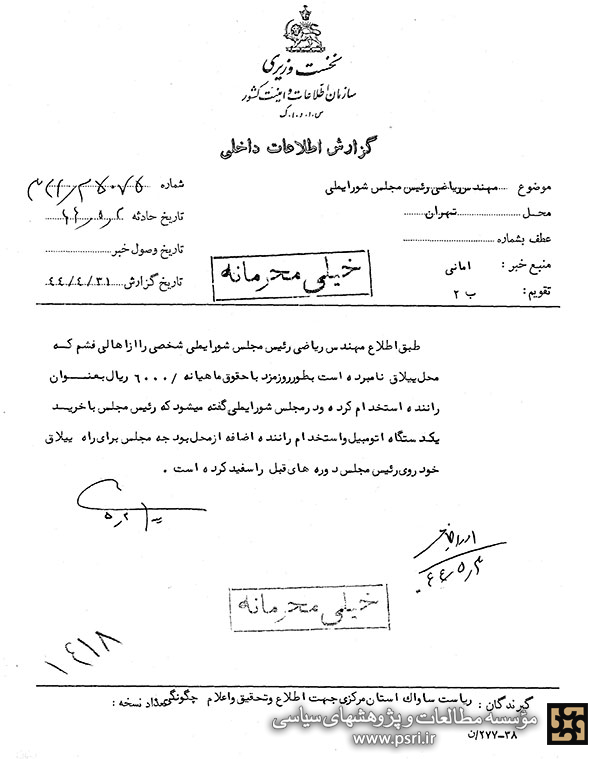 نخست وزیری
سازمان اطلاعات و امنیت کشور
س.ا.و.ا.ک
گزارش اطلاعات داخلی
موضوع ...مهندس ریاضی رئیس مجلس شورایملی
محل ...تهران...
عطف بشماره
منبع خبر : امانی
تقویم : ب ۲
شماره
تاریخ حادثه
تاریخ وصول خبر
تاریخ گزارش ۴۴/۴/۳۱
خیلی محرمانه
طبق اطلاع مهندس ریاضی رئیس مجلس شورایملی شخصی را از اهالی فشم که
محل ییلاق نامبرده است بطور روزمزد با حقوق ماهیانه /۶۰۰۰ ریال بعنوان
راننده استخدام کرده و در مجلس شورایملی گفته میشود که رئیس مجلس با خرید
یکدستگاه اتومبیل و استخدام راننده اضافه از محل بودجه مجلس برای راه ییلاق
خود روی رئیس مجلس دوره های قبل را سفید کرده است .
خیلی محرمانه
۱۴۱۸
گیرندگان : ریاست ساواک استان مرکزی جهت اطلاع و تحقیق و اعلام چگونگی
تعداد نسخه :
۲۷۷-۳۸/ن
مؤسسه مطالعات و پژوهشهای سیاسی
www.psri.ir